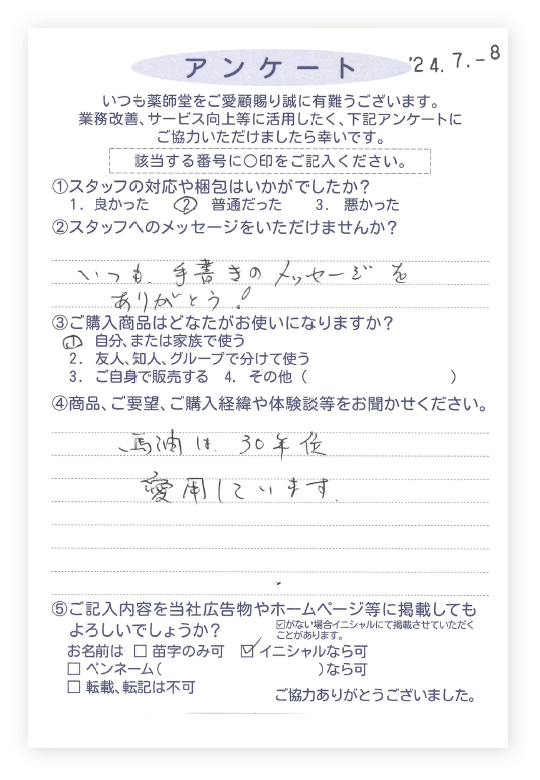 アンケート
'24.7.-8
いつも薬師堂をご愛顧賜り誠に有難うございます。
業務改善、サービス向上等に活用したく、下記アンケートに
ご協力いただけましたら幸いです。
該当する番号に〇印をご記入ください。
①スタッフの対応や梱包はいかがでしたか?
1. 良かった ② 普通だった 3. 悪かった
②スタッフへのメッセージをいただけませんか?
いつも、手書きのメッセージを
ありがとう!
③ご購入商品はどなたがお使いになりますか?
① 自分、または家族で使う
2. 友人、知人、グループで分けて使う
3. ご自身で販売する 4. その他( )
④商品、ご要望、ご購入経緯や体験談等をお聞かせください。
馬油は、30年位
愛用しています。
⑤ご記入内容を当社広告物やホームページ等に掲載しても
よろしいでしょうか?
☑がない場合イニシャルにて掲載させていただく
ことがあります。
お名前は □ 苗字のみ可 ☑ イニシャルなら可
□ ペンネーム( )なら可
□ 転載、転記は不可
ご協力ありがとうございました。